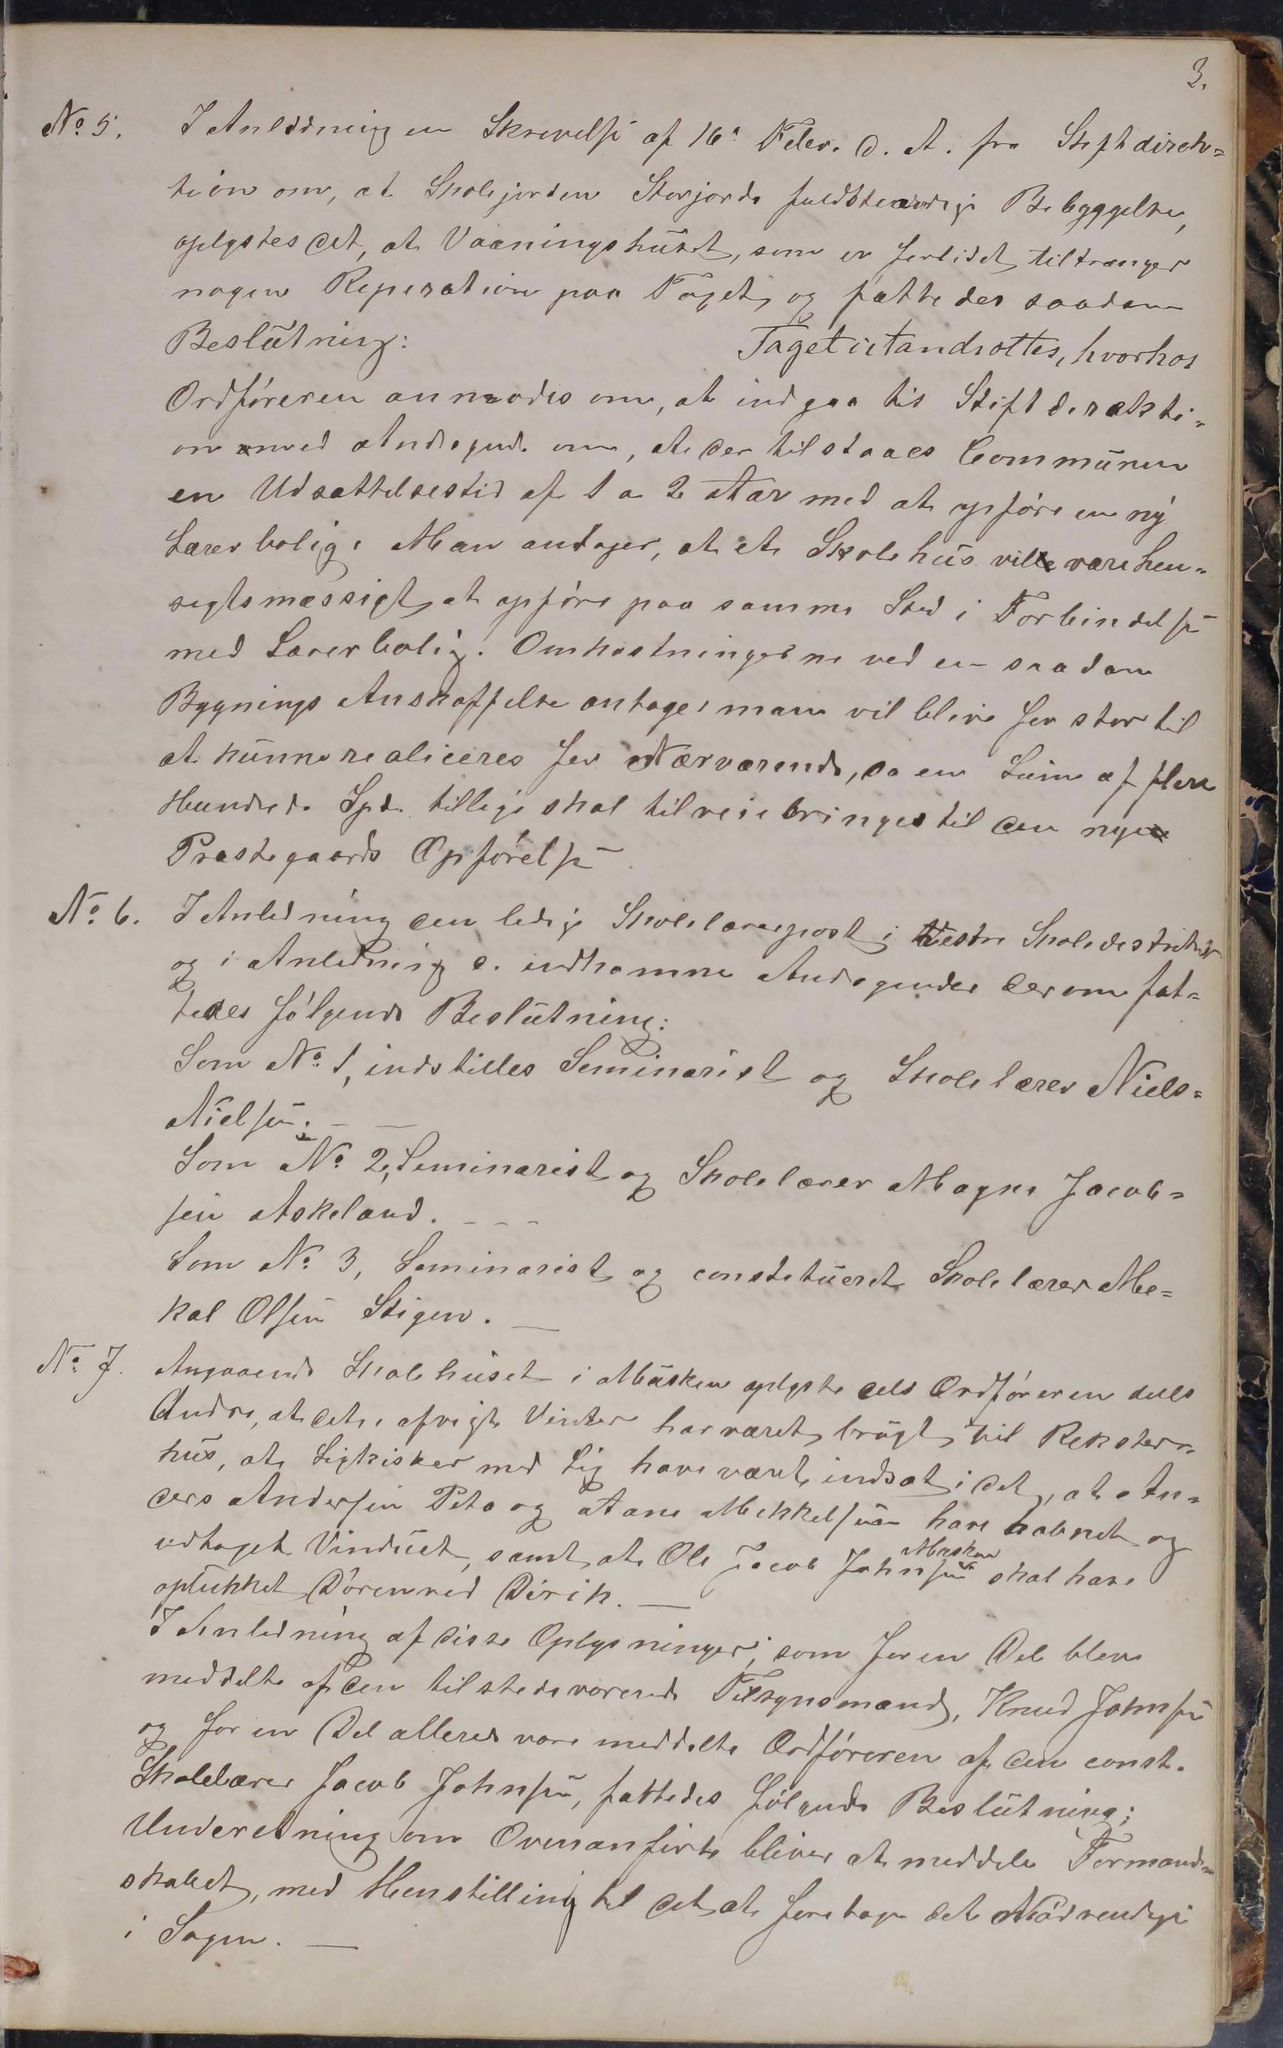 3.
No 5. I Anledning en Skrivelse af 16de Febr. d. A. fra Stiftdirek=
tion om, at Skolejorden Storjords fuldstændige Bebyggelse,
oplystes det, at Vaaningshuset, som er forlidet, tiltrænger
nogen Reperation paa Taget, og fattedes saadan
Beslutning: Taget istandsættes, hvorhos
Ordføreren anmodes om, at indgaa til Stiftdirekti=
on med Andragende om, at der tilstaaes Communen
en Udsættelsestid af 1 a 2 Aar med at opføre en ny
Lærerbolig. Man antager, at et Skolehus ville være hen=
sigtsmæssigt at opføre paa samme Sted i Forbindelse
med Lærerbolig. Omkostningerne ved en saadan
Bygnings Anskaffelse antager man vil blive for stor til
at kunne realiceres for Nærværende, da en Sum af flere
Hundrede Spd. tillige skal tilveiebringes til den nye
Præstegaards Opførelse
No 6. I Anledning den ledige Skolelærerpost i Vestre Skoledistrikt
og i Anledning d. indkomne Andragender derom fat=
tedes følgende Beslutning:
Som No 1, indstilles Seminarist og Skolelærer Niels=
Nielsen. — —
Som No 2, Seminarist og Skolelærer Magne Jacob=
sen Askeland. - - -
Som No 3, Seminarist og constitueret Skolelærer Mi=
kal Olsen Stigen. —
No 7. Angaaende Skolehuset i Musken oplyste dels Ordføreren dels
Andre, at det i afvigte Vinter har været brugt til
hus, at Ligkister med Lig have været indsat i det, at An=
ders Andersen Peta og Aane Mikkelsen have aabnet og
udtaget Vinduet, samt at Ole Jacob Johnsen Musken skal have
oplukket Døren ved Dirik. —
I Anledning af disse Oplysninger, som for en Del bleve
meddelte af den tilstedeværende Tilsynsmand, Knud Johnsen
og for en Del allerede vare meddelte Ordføreren af den const.
Skolelærer Jacob Johnsen, fattedes følgende Beslutning:
Underetning om Ovenanførte bliver at meddele Formand=
skabet, med Henstilling til det at foretage det Nødvendige
i Sagen. —